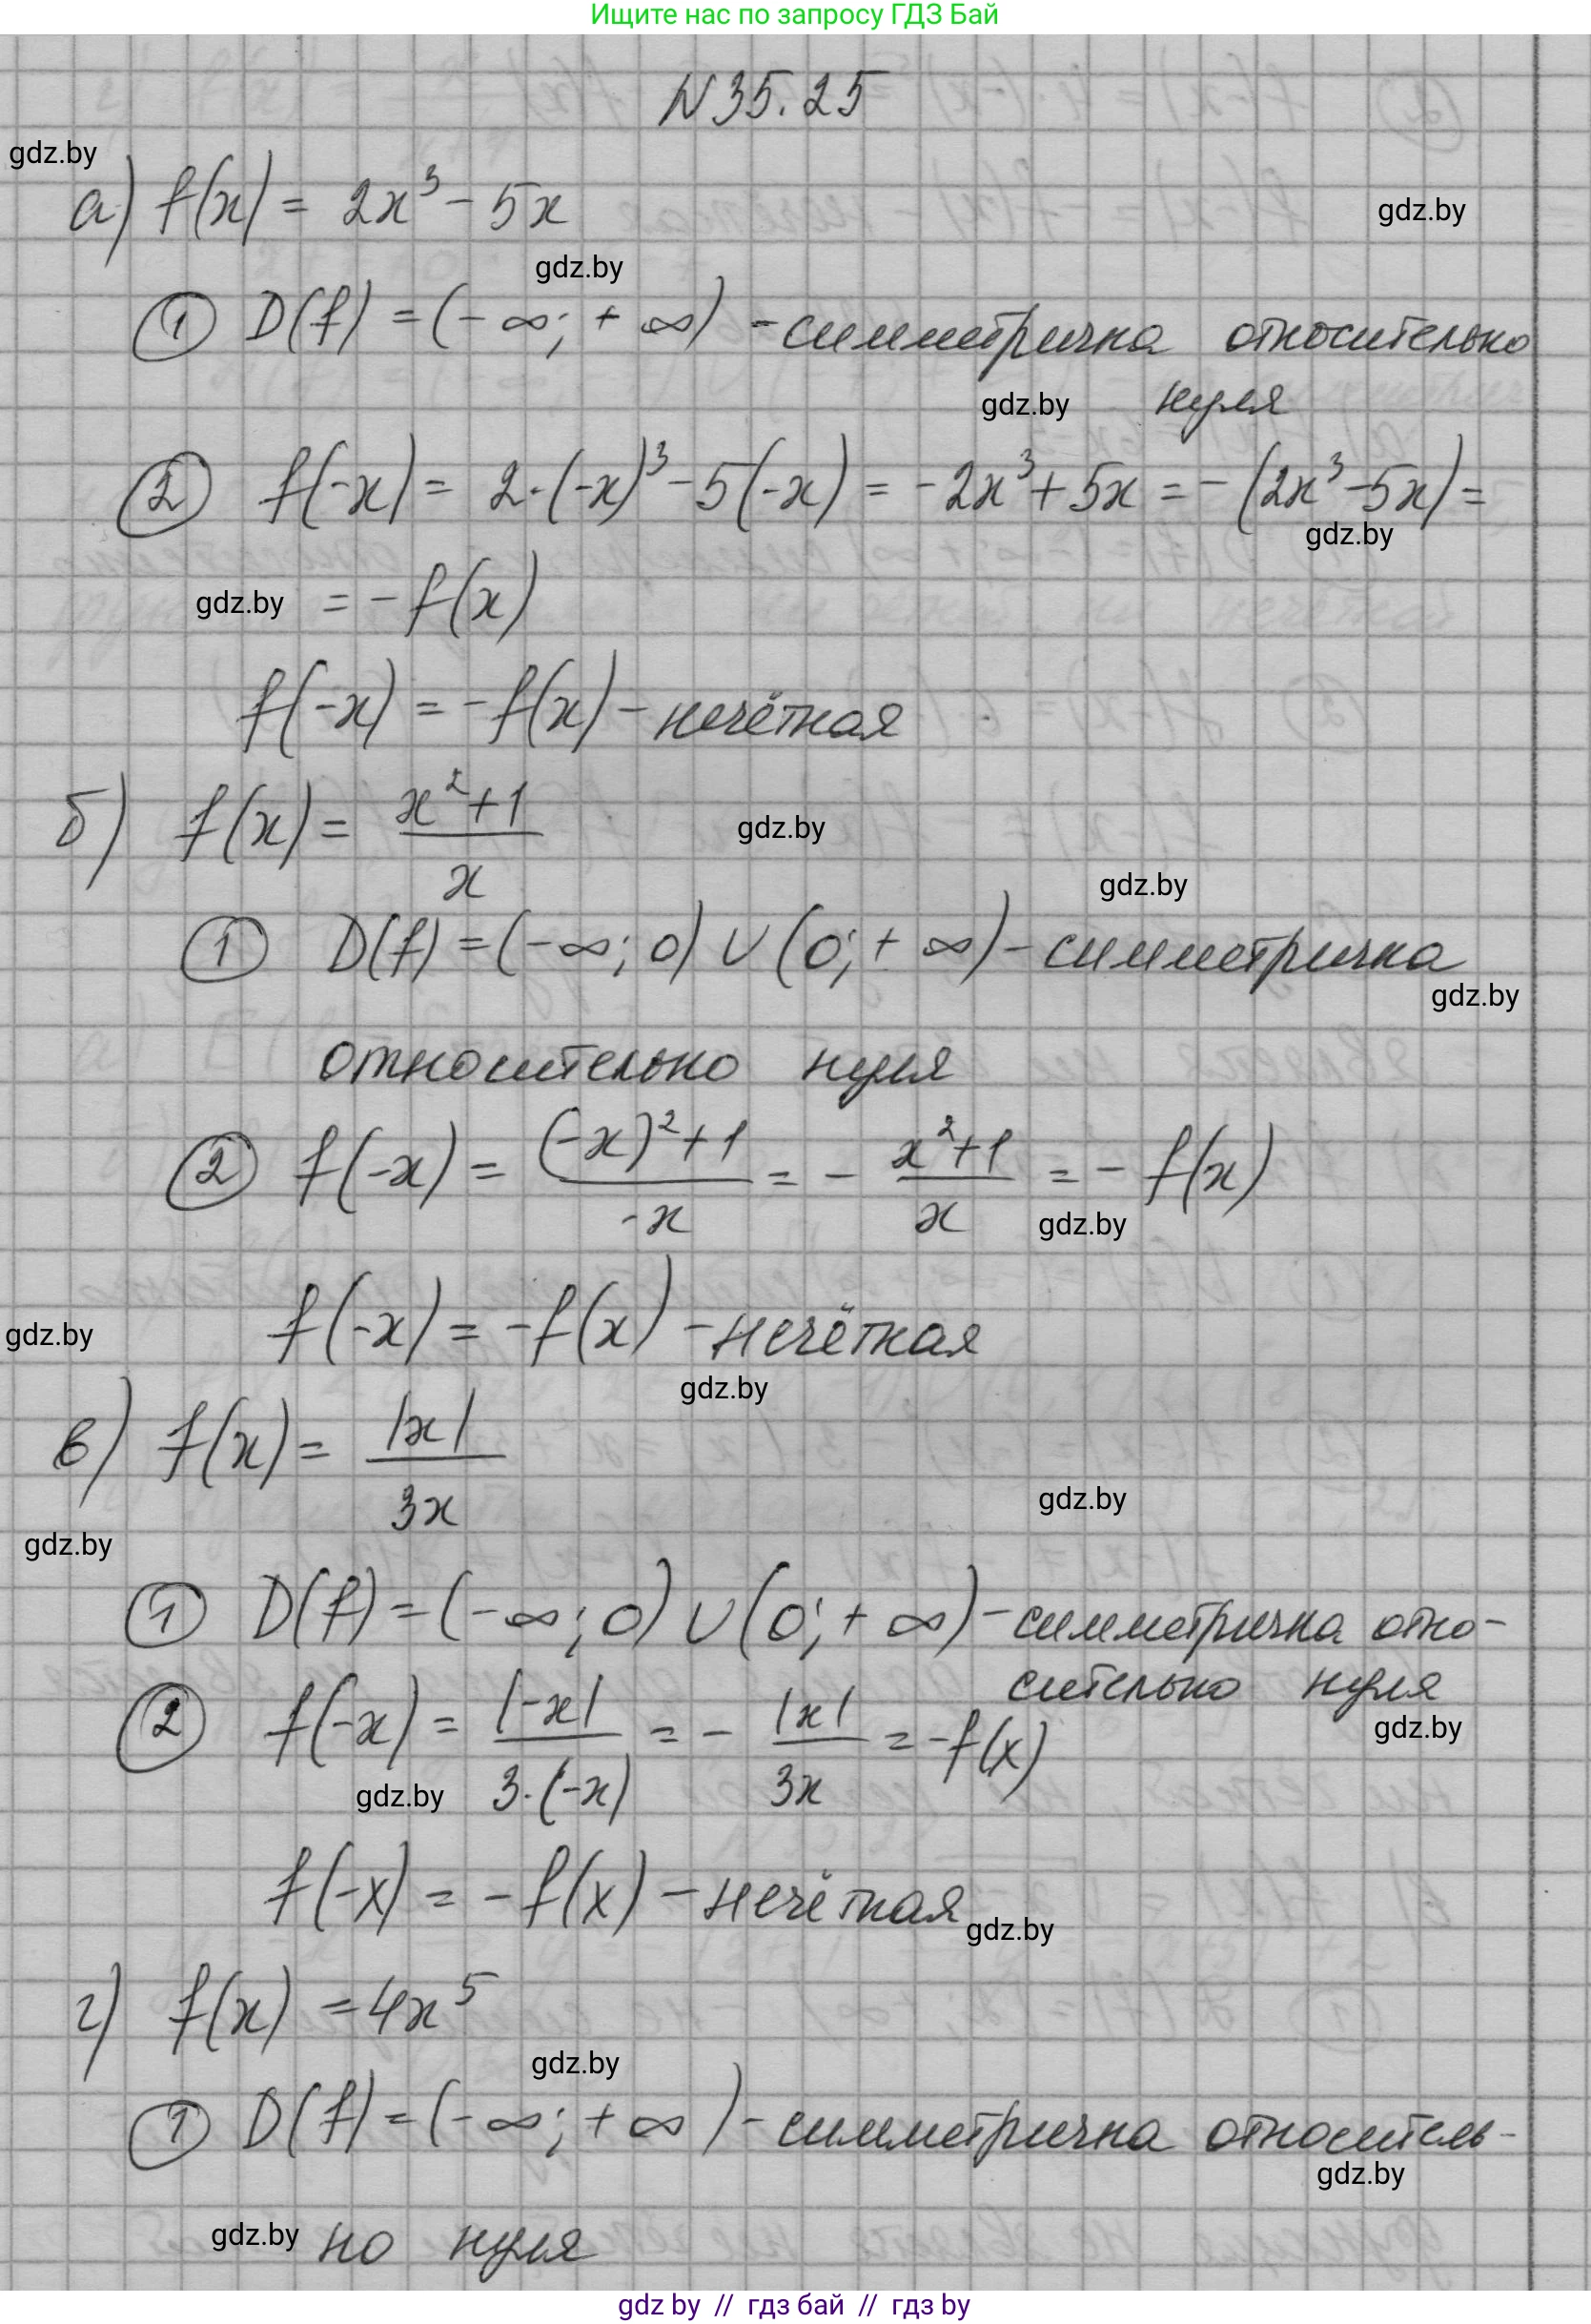 Ищите нас по запросу ГДЗ Бай
N 35.25
gdz.by
а) f(x) = 2x³ - 5x
gdz.by
gdz.by
① D(f) = (-∞; +∞) - симметрична относительно
gdz.by нуля
② f(-x) = 2·(-x)³ - 5(-x) = -2x³ + 5x = -(2x³ - 5x) =
gdz.by
gdz.by = -f(x)
f(-x) = -f(x) - нечётная
б) f(x) = (x² + 1)/x
gdz.by
gdz.by
① D(f) = (-∞; 0) ∪ (0; +∞) - симметрична
gdz.by
относительно нуля
② f(-x) = ((-x)² + 1)/(-x) = - (x² + 1)/x = - f(x)
gdz.by
f(-x) = -f(x) - нечёткая
gdz.by
gdz.by
в) f(x) = |x|/(3x)
gdz.by
gdz.by
① D(f) = (-∞; 0) ∪ (0; +∞) - симметрична отно-
сительно нуля
② f(-x) = |-x|/(3·(-x)) = - |x|/(3x) = -f(x)
gdz.by
gdz.by
f(-x) = -f(x) - нечётная
gdz.by
г) f(x) = 4x⁵
gdz.by
① D(f) = (-∞; +∞) - симметрична относитель-
gdz.by
gdz.by но нуля
gdz by // гдз бай // гдз by